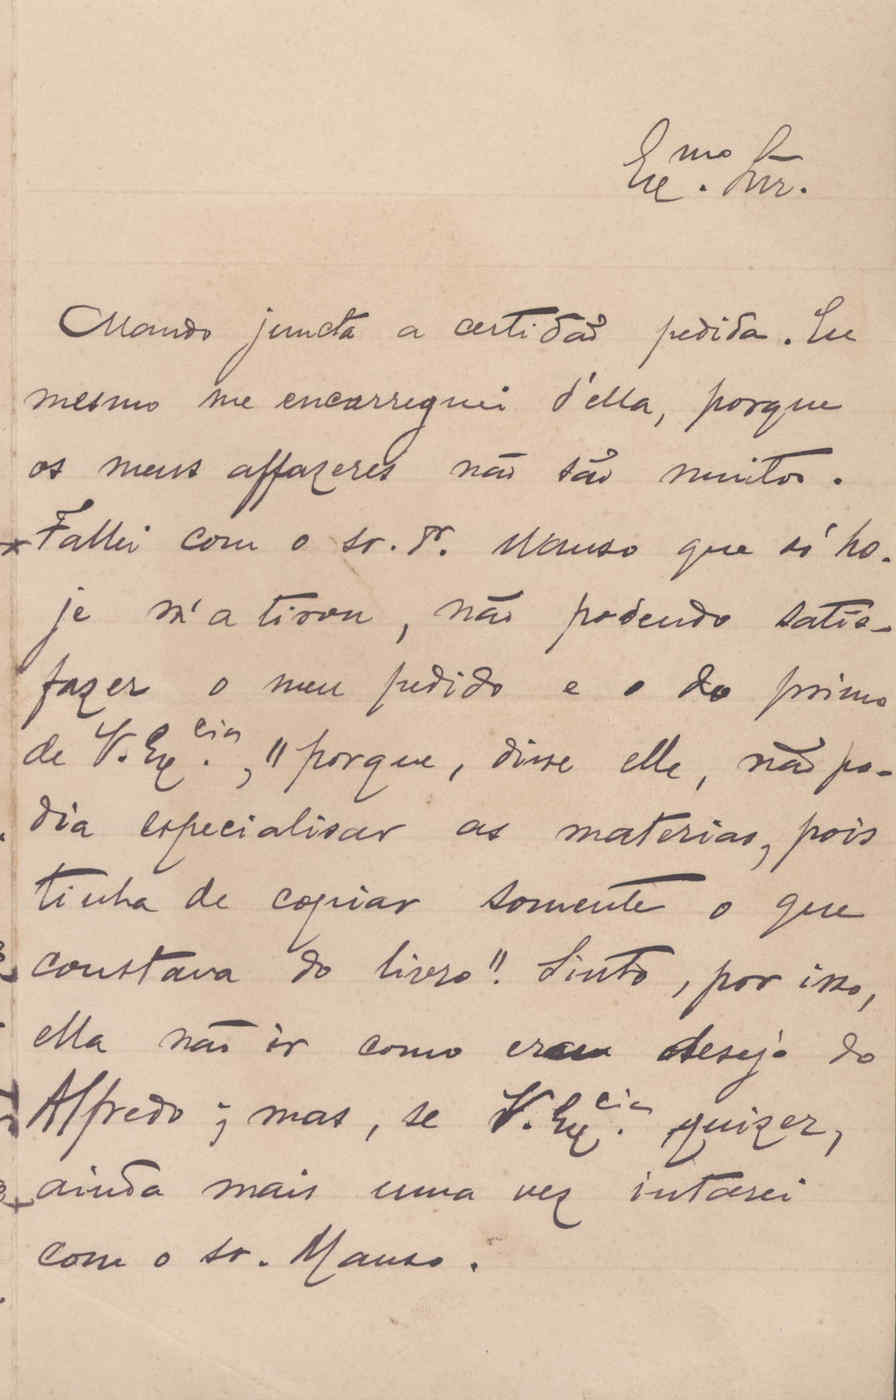 Ex.mo Snr.
Mando juncta a certidão pedida. Eu
mesmo me encarreguei d'ella, porque
os meus affazeres não são muitos.
Fallei com o sr. dr. Manso que só ho-
je m'a tirou, não podendo satis-
fazer o meu pedido e o do primo
de V. Ex.cia, "porque, disse elle, não po-
dia especialisar as materias, pois
tinha de copiar somente o que
constava do livro". Sinto, por isso,
ella não ir como era desejo do
Alfredo; mas, se V. Ex.cia quizer,
ainda mais uma vez intarei
com o sr. Manso.